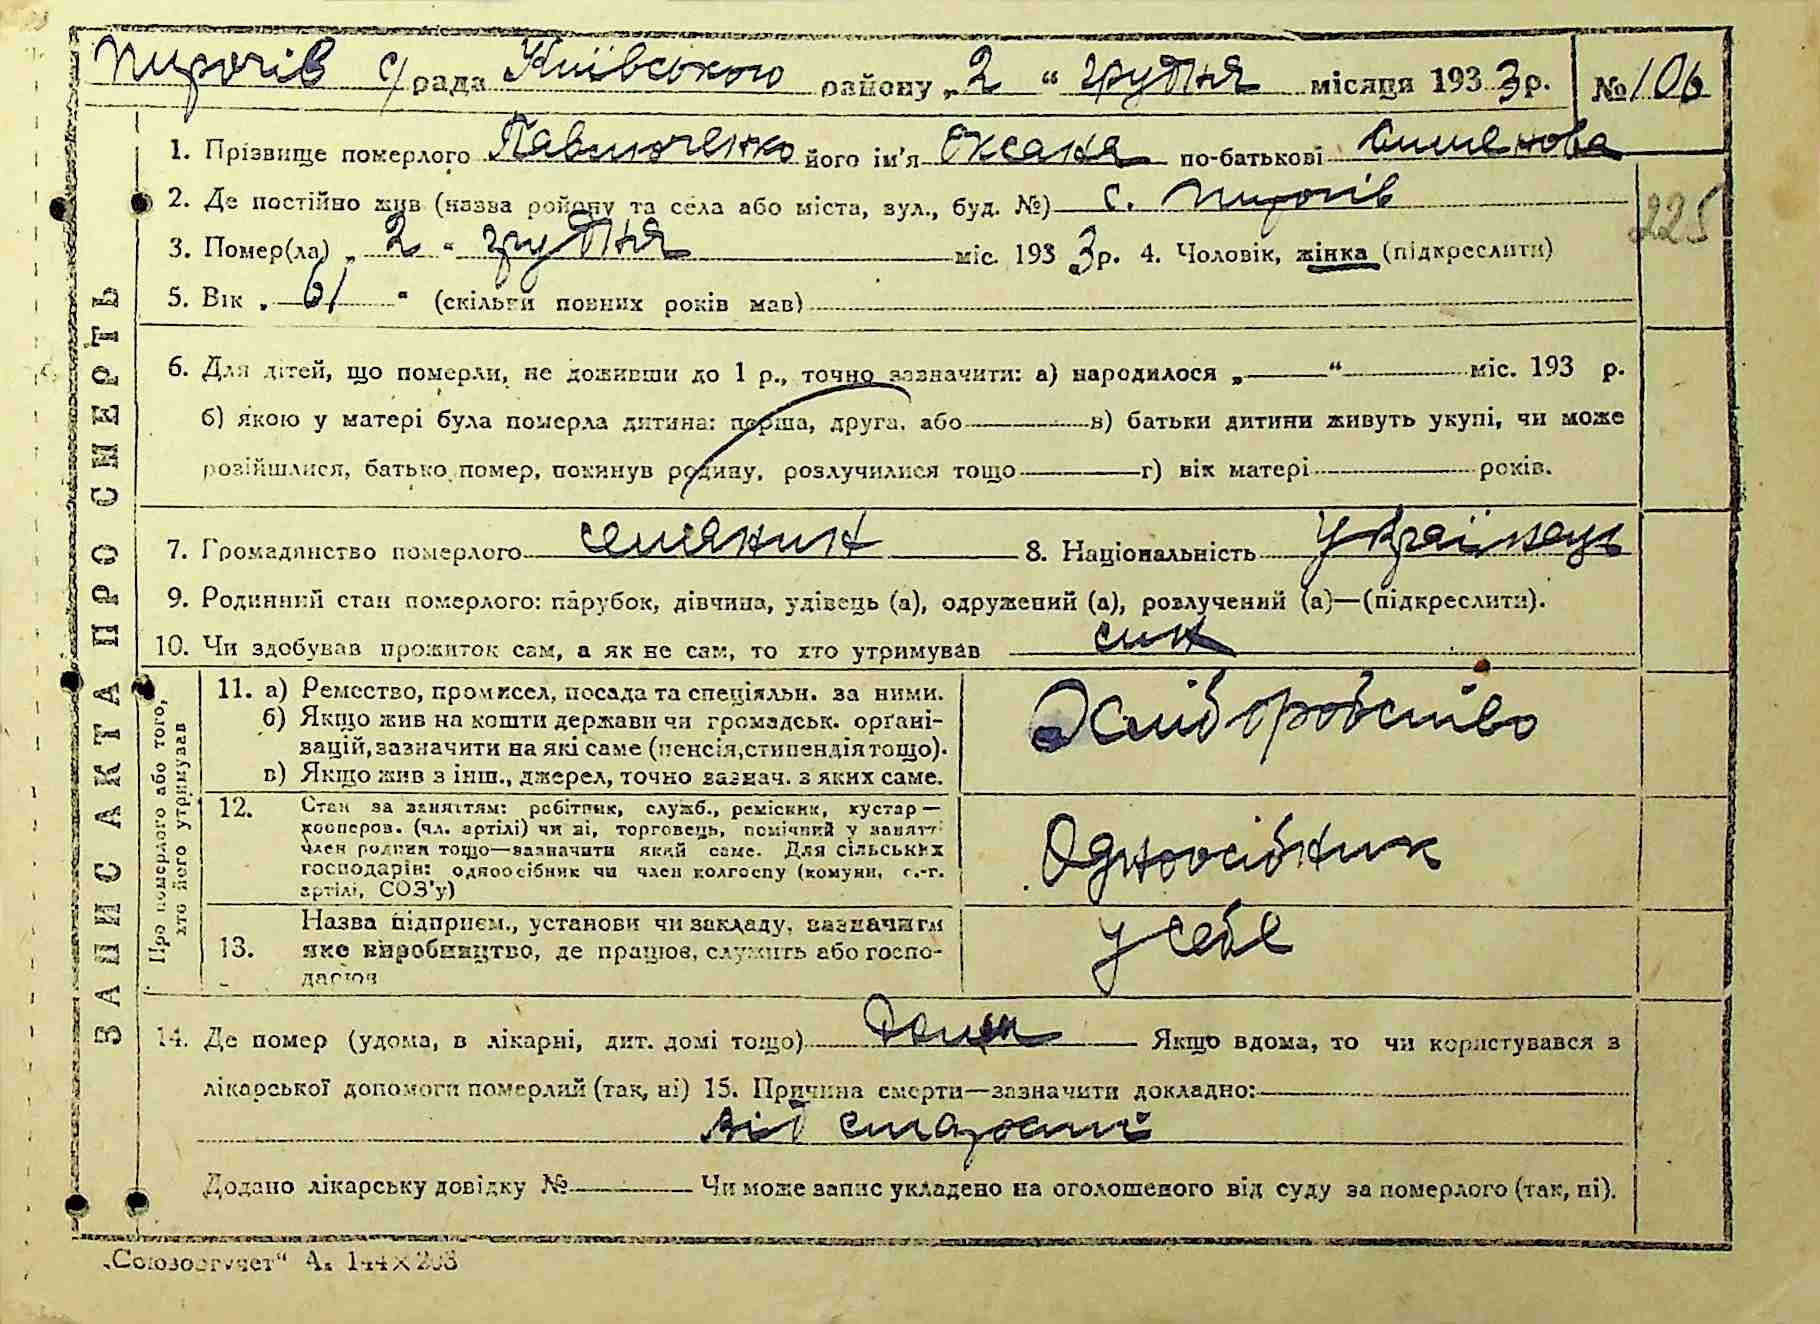 Пирогів с/рада Київського району „2“ грудня місяця 1933р. № 106
1. Прізвище померлого Павлюченко його ім'я Оксана по-батькові
2. Де постійно жив (назва району та села або міста, вул., буд. №) с. Пирогів
225
3. Помер(ла) „2“ грудня міс. 1933р. 4. Чоловік, жінка (підкреслити)
5. Вік „61“ (скільки повних років мав)
6. Для дітей, що померли, не доживши до 1 р., точно зазначити: а) народилося „ “ міс. 193 р.
б) якою у матері була померла дитина: перша, друга, або в) батьки дитини живуть укупі, чи може
розійшлися, батько помер, покинув родину, розлучилися тощо г) вік матері років.
7. Громадянство померлого селянин 8. Національність Українець
9. Родинний стан померлого: парубок, дівчина, удівець (а), одружений (а), розлучений (а)—(підкреслити).
10. Чи здобував прожиток сам, а як не сам, то хто утримував син
ЗАПИС АКТА ПРО СМЕРТЬ
Про померлого або того,
хто його утримував
11. а) Ремество, промисел, посада та спеціяльн. за ними.
б) Якщо жив на кошти держави чи громадськ. орґані-
зацій, зазначити на які саме (пенсія, стипендія тощо).
в) Якщо жив з інш., джерел, точно зазнач. з яких саме.
Хліборобство
12. Стан за заняттям: робітник, служб., реміскик, кустар—
кооперов. (чл. артілі) чи ні, торговець, помічний у занятті
член родини тощо—зазначити який саме. Для сільських
господарів: одноосібник чи член колгоспу (комуни, с.-г.
артілі, СОЗ'у)
Одноосібник
13. Назва підприєм., установи чи закладу, зазначити
яке виробництво, де працюв, служить або госпо-
дарюв
у себе
14. Де помер (удома, в лікарні, дит. домі тощо) Дома Якщо вдома, то чи користувався з
лікарської допомоги померлий (так, ні) 15. Причина смерти—зазначити докладно:
від старости
Додано лікарську довідку № Чи може запис укладено на оголошеного від суду за померлого (так, ні).
„Союзоргучет“ А. 144×203